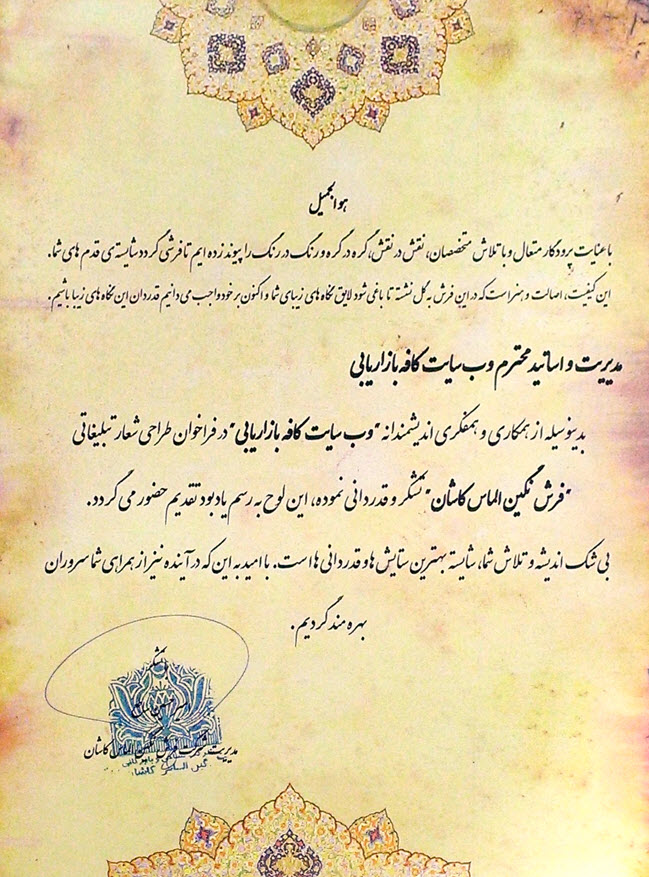 هوالجمیل
با عنایت پرودگار متعال و با تلاش متخصصان، نقش در نقش، گره در گره و رنگ در رنگ را پیوند زده ایم تا فرشی گردد شایسته ی قدم های شما.
این کیفیت، اصالت و هنر است که در این فرش به گل نشسته تا باغی شود لایق نگاه های زیبای شما و اکنون بر خود واجب می دانیم قدردان این نگاه های زیبا باشیم.
مدیریت و اساتید محترم وب سایت کافه بازاریابی
بدینوسیله از همکاری و همفکری اندیشمندانه "وب سایت کافه بازاریابی" در فراخوان طراحی شعار تبلیغاتی
"فرش نگین الماس کاشان" تشکر و قدردانی نموده، این لوح به رسم یادبود تقدیم حضور می گردد.
بی شک اندیشه و تلاش شما، شایسته بهترین ستایش ها و قدردانی ها است. با امید به این که در آینده نیز از همراهی شما سروران
بهره مند گردیم.
باتشکر
مدیریت شرکت فرش نگین الماس کاشان